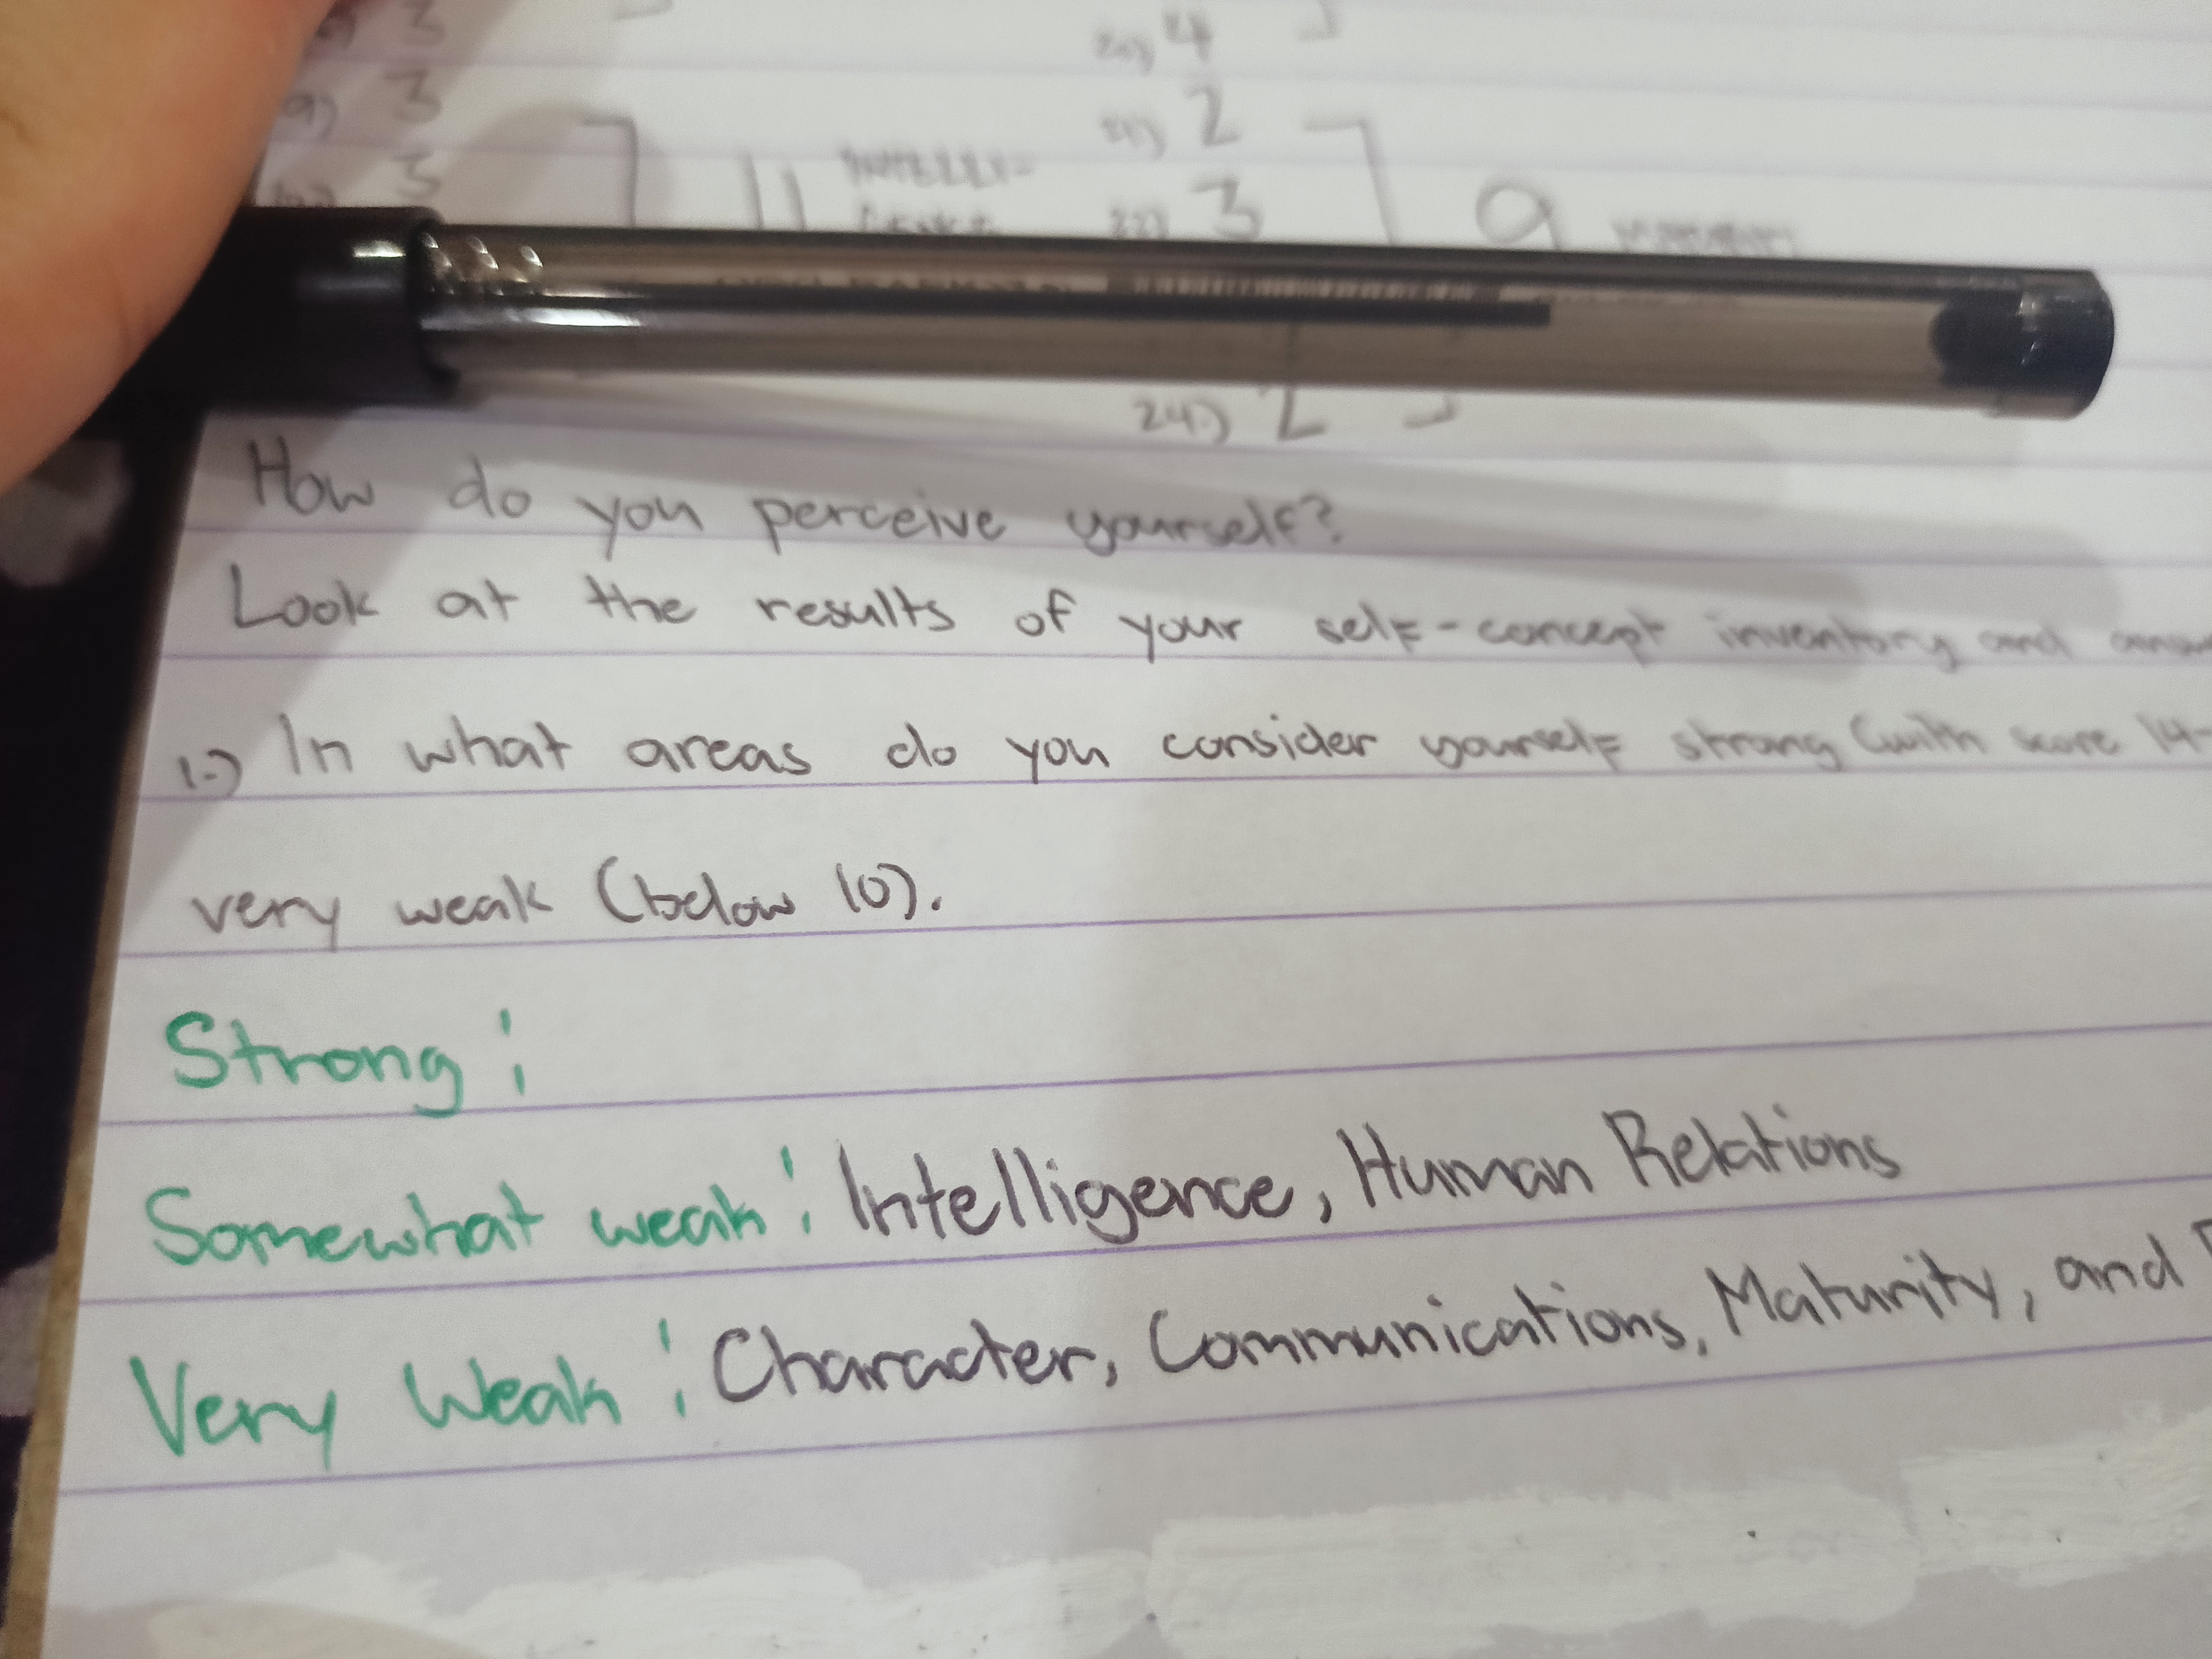 3
20.) 4
9) 3
21.) 2
3
11 INTELLI-
22.) 3
9
24.) 2
How do you perceive yourself?
Look at the results of your self-concept inventory and
1.) In what areas do you consider yourself strong (with score 14-
very weak (below 10).
Strong:
Somewhat weak: Intelligence, Human Relations
Very Weak: Character, Communications, Maturity, and